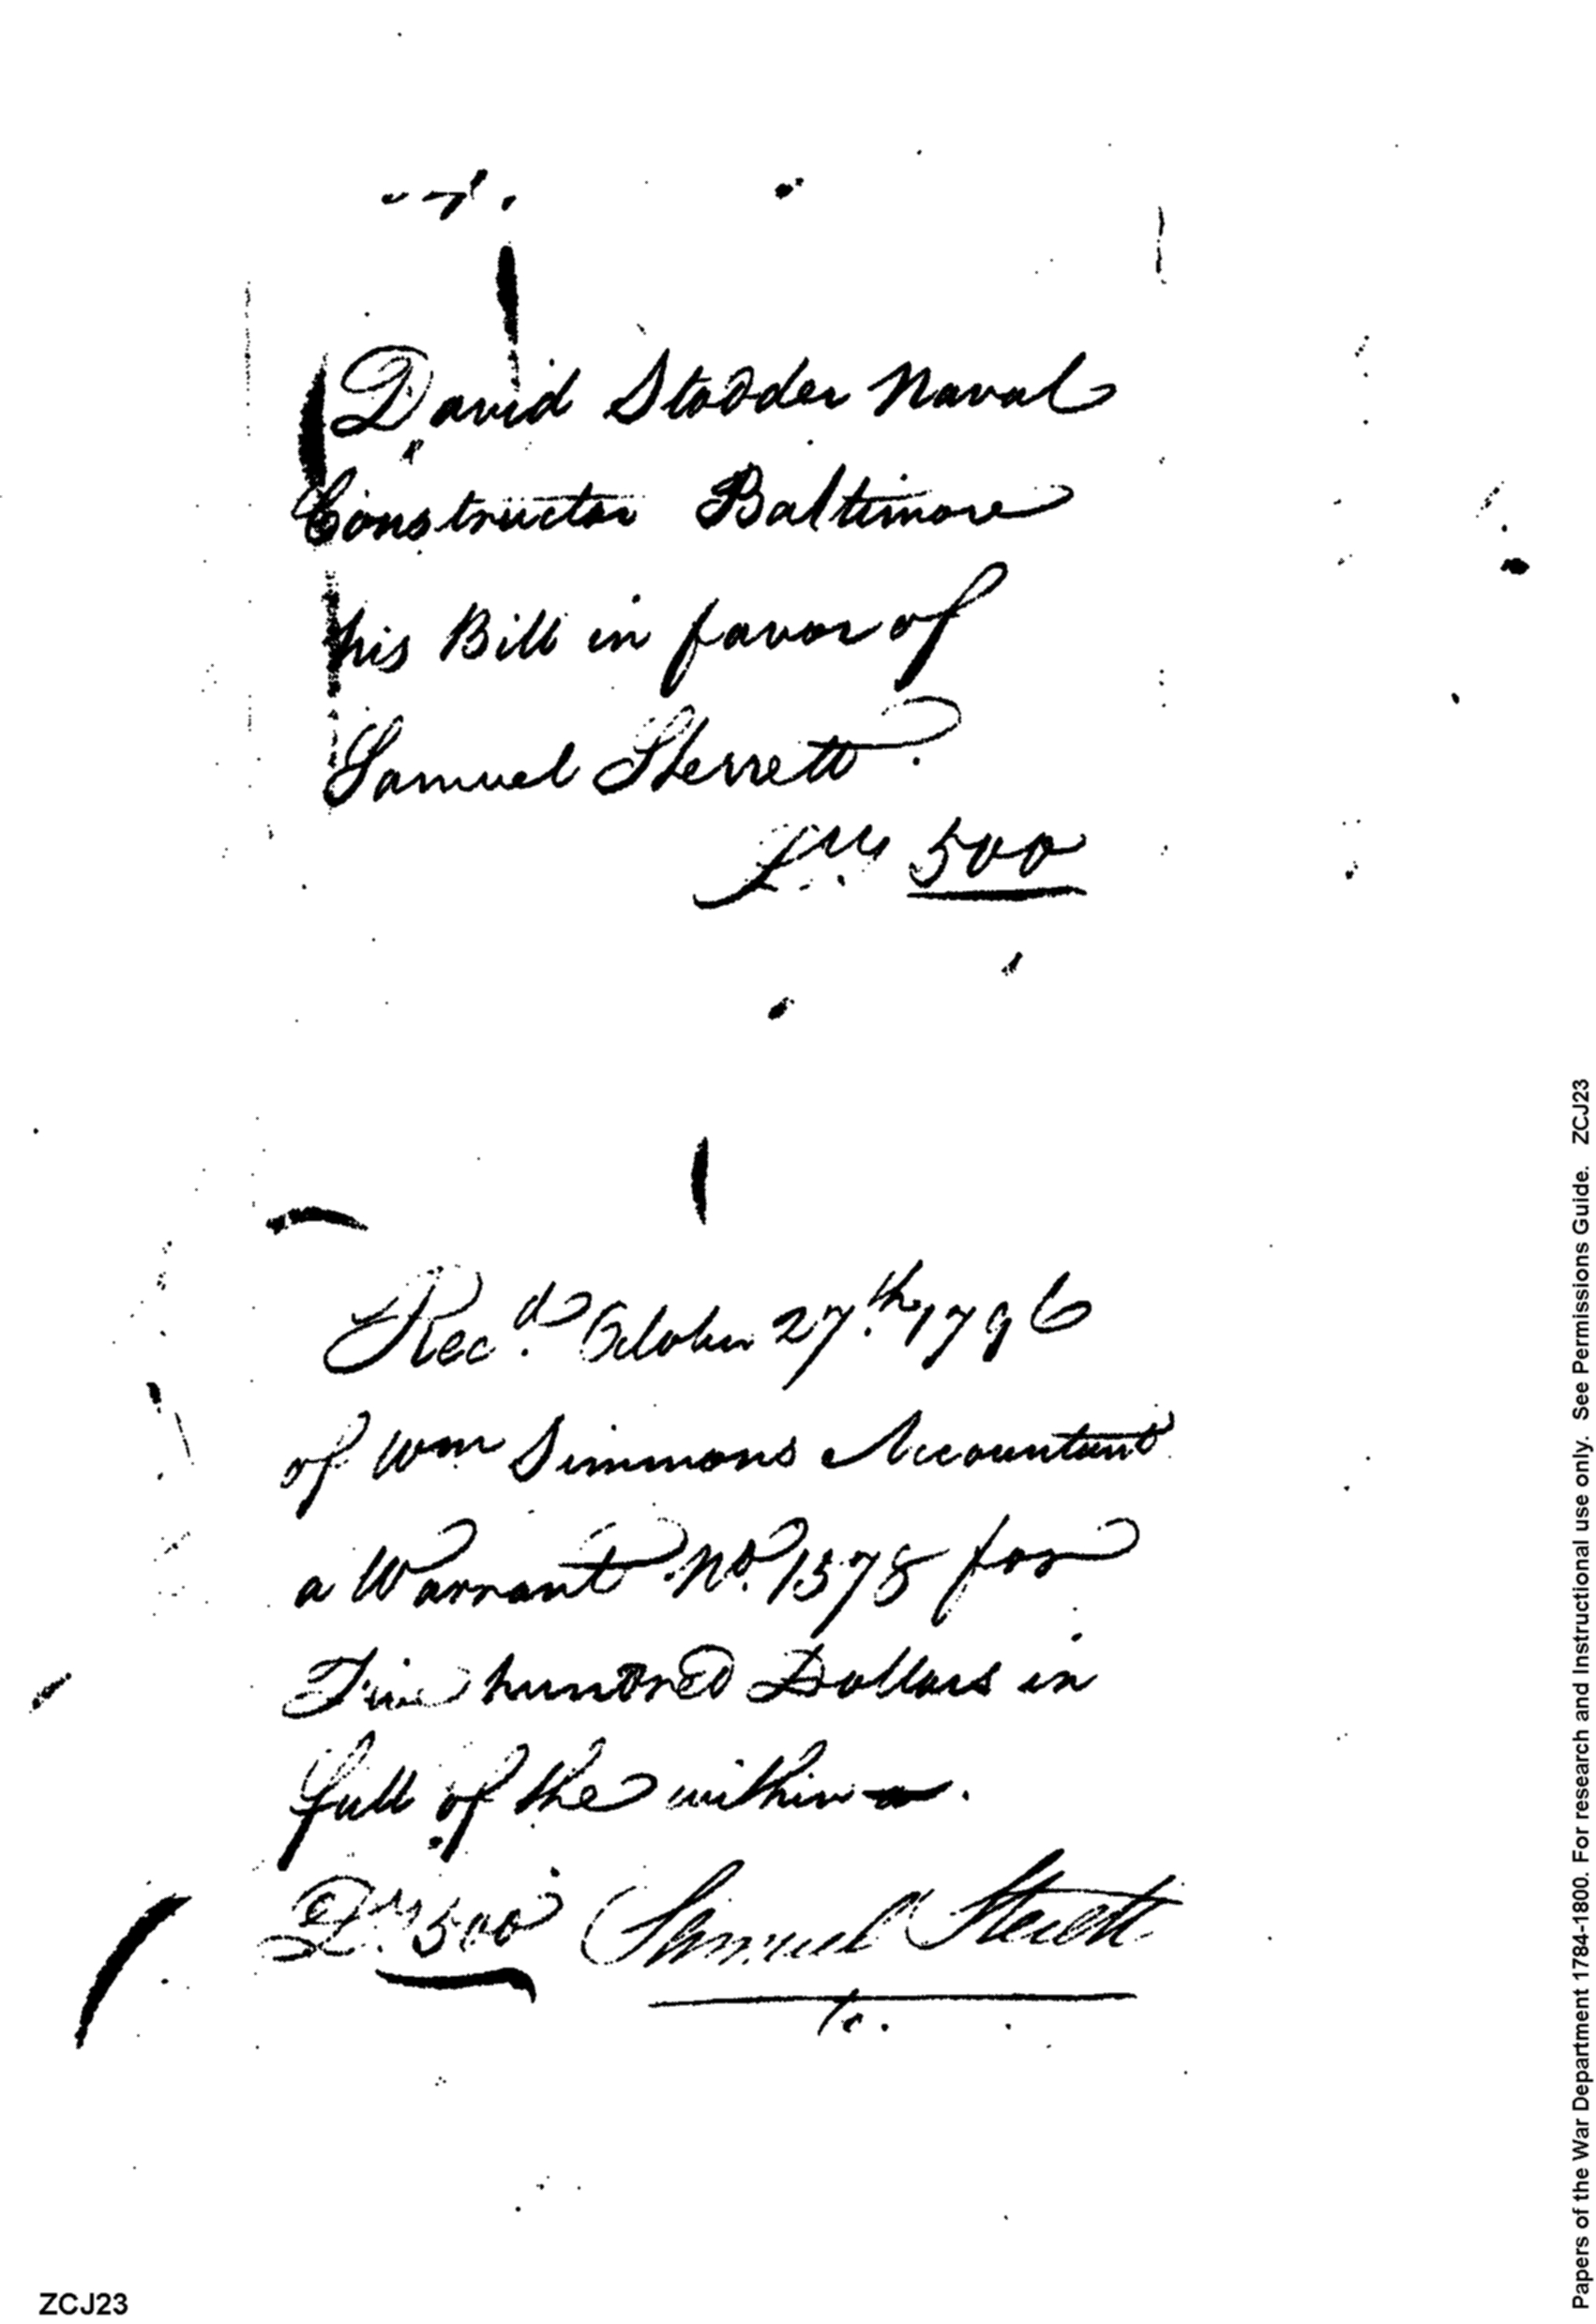 David Stodder Naval
Constructor Baltimore
his Bill in favor of
Samuel Sterrett.
500
Recd. October 27th. 1796
of Wm Simmons Accountant
a Warrant No. 1578 for
Five hundred Dollars in
full of the within.
Drs. 500 Samuel Sterett
ZCJ23
Papers of the War Department 1784-1800. For research and Instructional use only. See Permissions Guide. ZCJ23